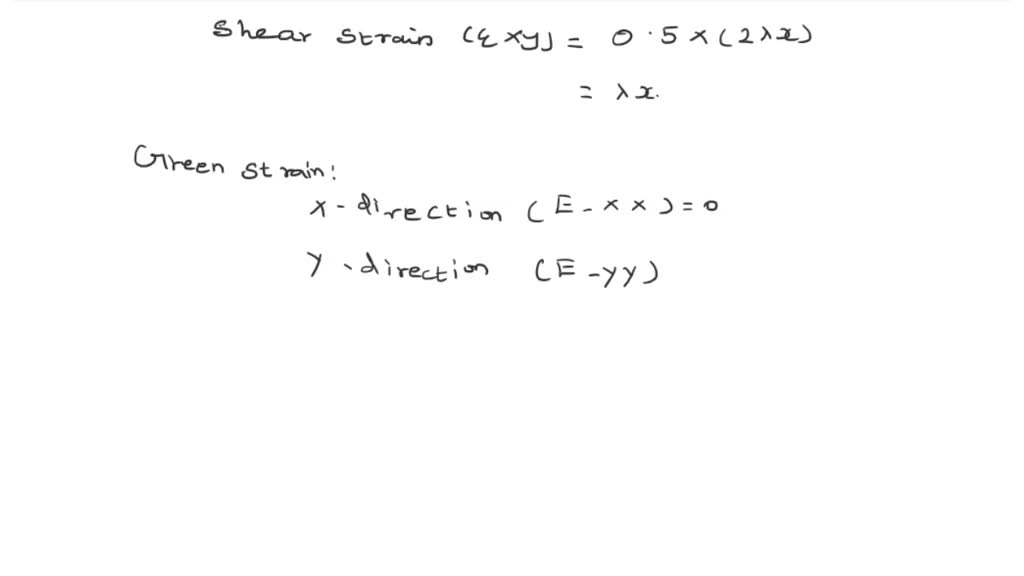 Shear strain (ε xy) = 0.5 × (2λx)
= λx.
Green strain:
x-direction (E-xx) = 0
y-direction (E-yy)